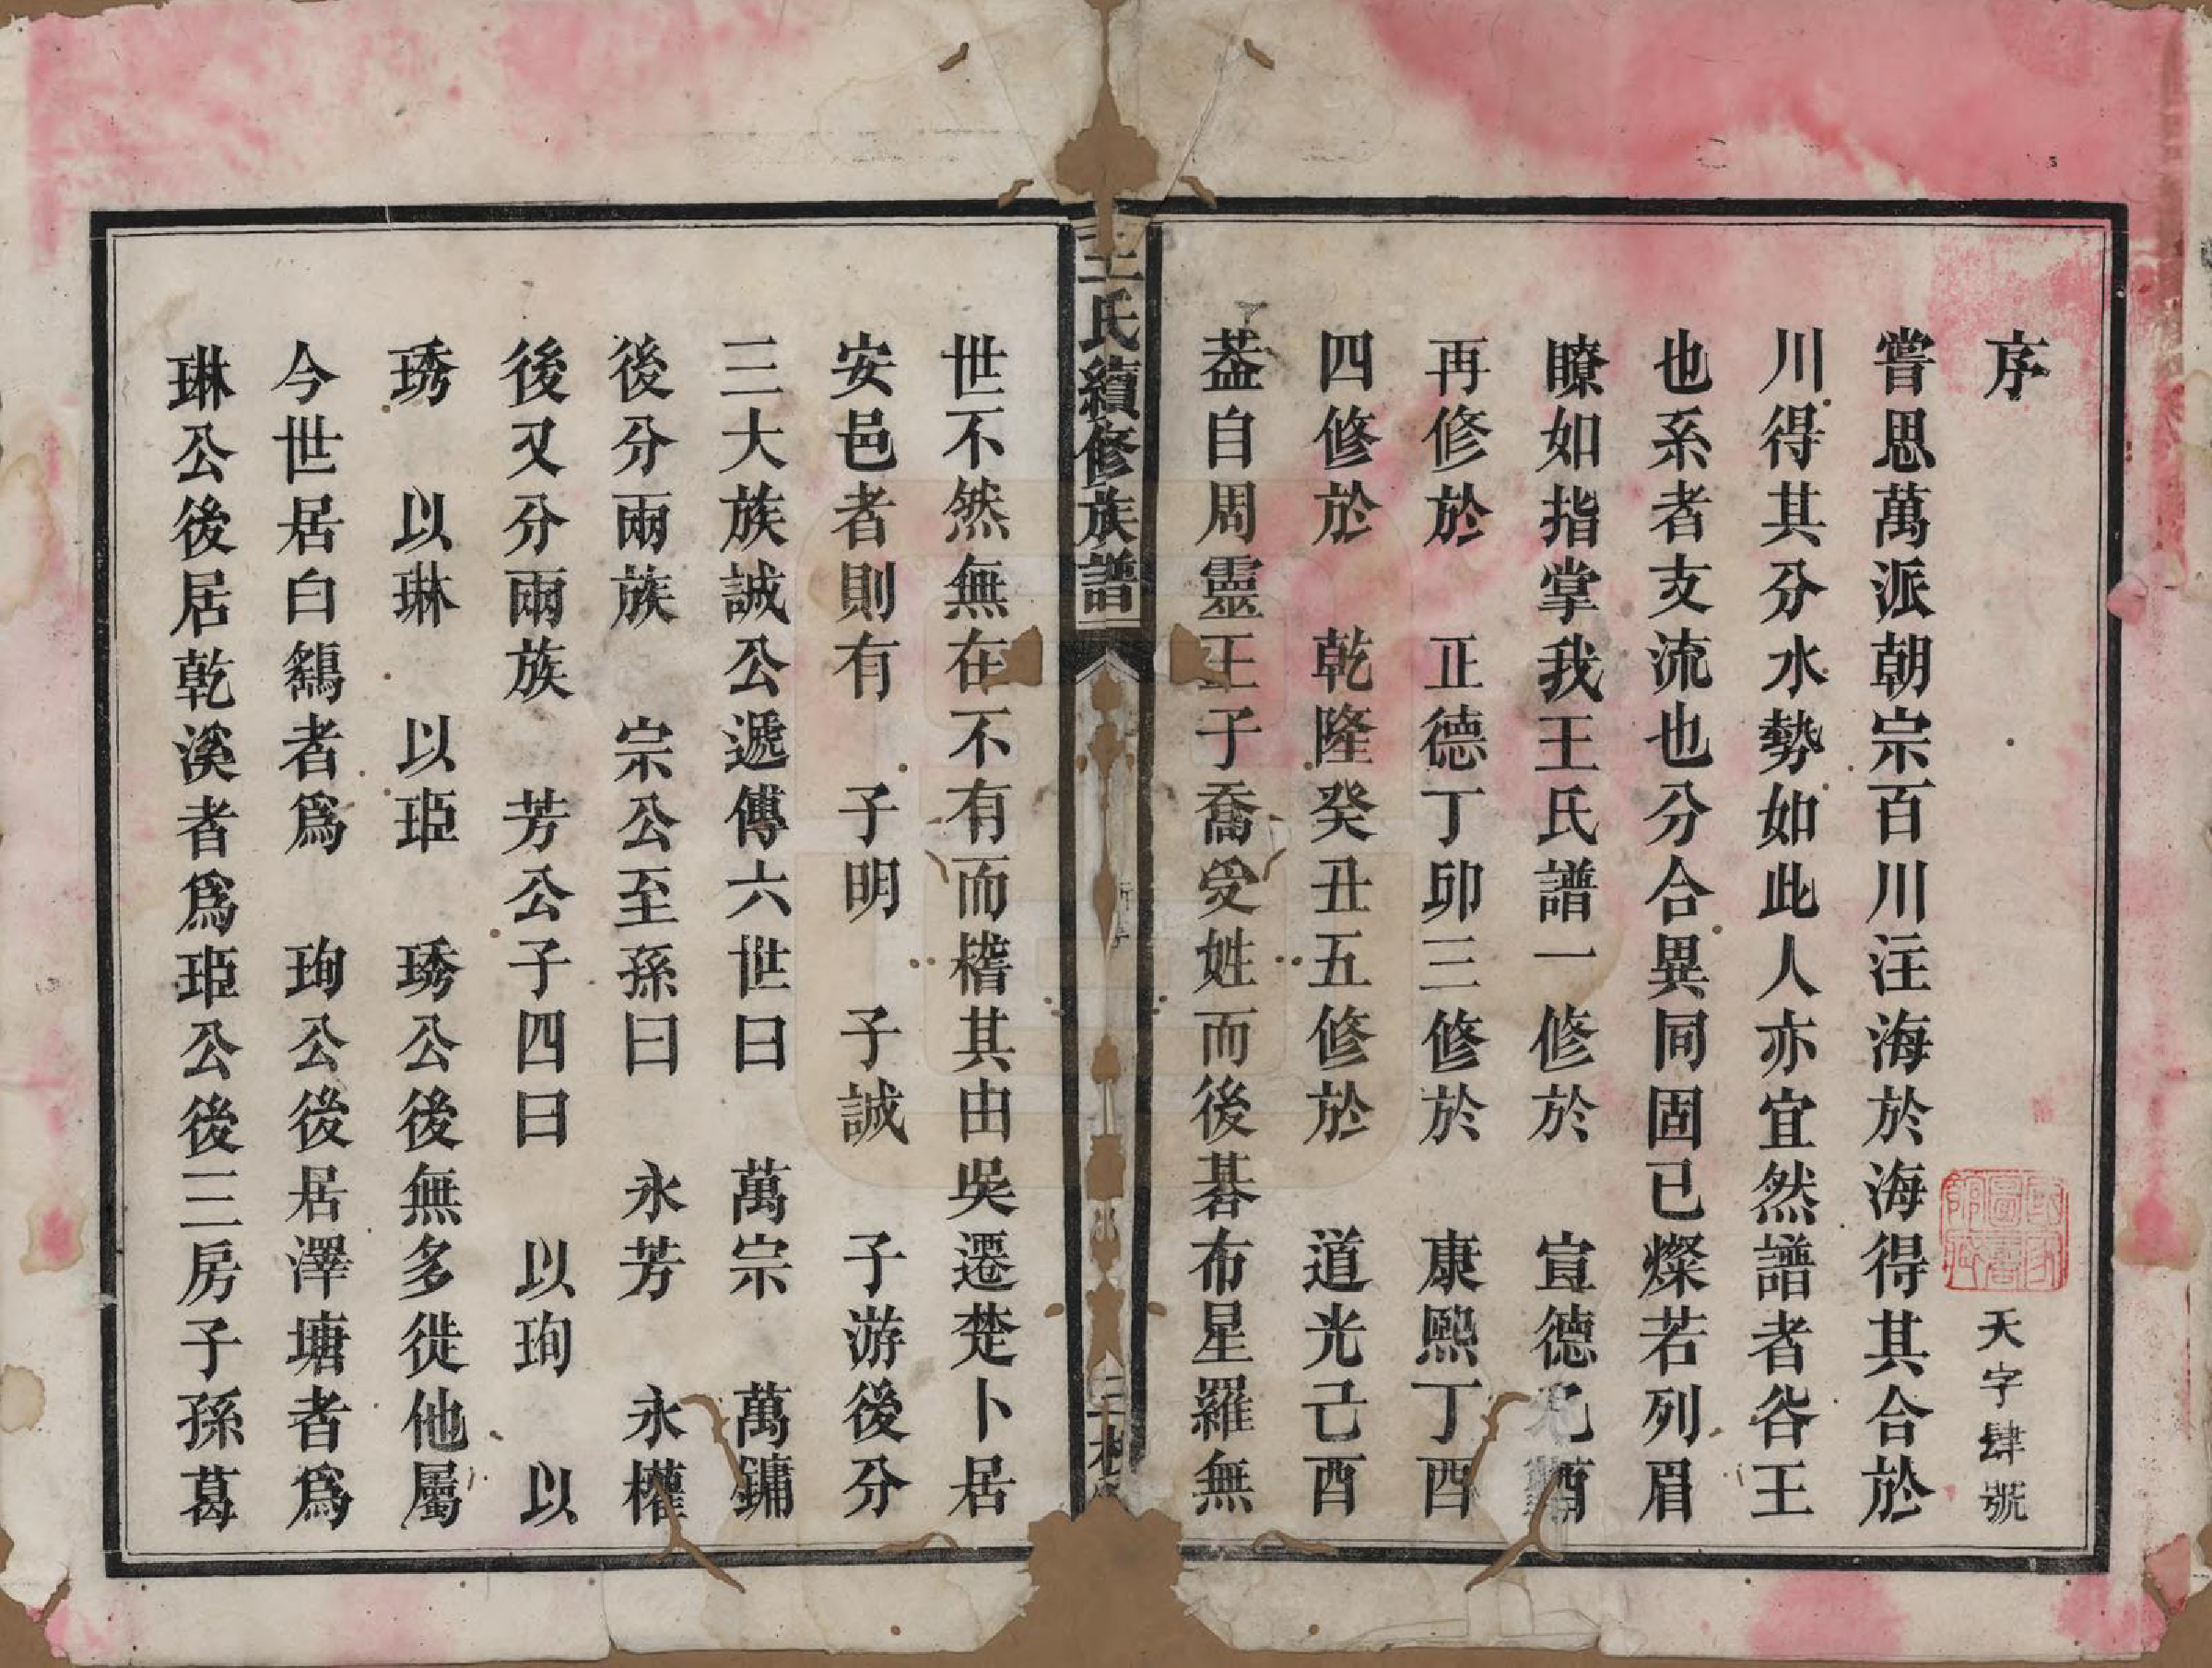 序
天字肆號
嘗思萬派朝宗百川注海於海得其合於
川得其分水勢如此人亦宜然譜者谷王
也系者支流也分合異同固已燦若列眉
瞭如指掌我王氏譜一修於　宣德
再修於　正德丁卯三修於　康熙丁酉
四修於　乾隆癸丑五修於　道光己酉
葢自周靈王子喬受姓而後碁布星羅無
王氏續修族譜
世不然無在不有而稽其由吳遷楚卜居
安邑者則有　子明　子誠　子游後分
三大族誠公遞傳六世曰　萬宗　萬鏞
後分兩族　宗公至孫曰　永芳　永權
後又分兩族　芳公子四曰　以珣　以
琇　以琳　以㻒　琇公後無多徙他屬
今世居白鷂者爲　珣公後居澤塘者爲
琳公後居乾溪者爲㻒公後三房子孫葛